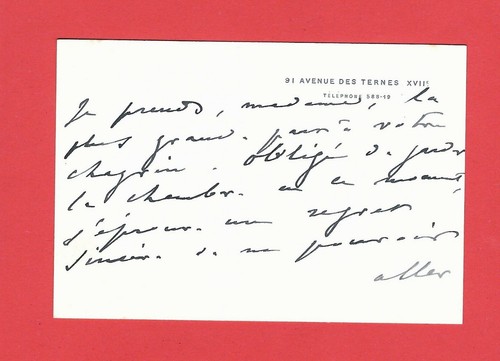 91 AVENUE DES TERNES XVIIe
TÉLÉPHONE 589-19
Je prends, madame, la
plus grande part à votre
chagrin. Obligé de garder
la chambre en ce moment,
j'éprouve un regret
sincère de ne pouvoir
aller